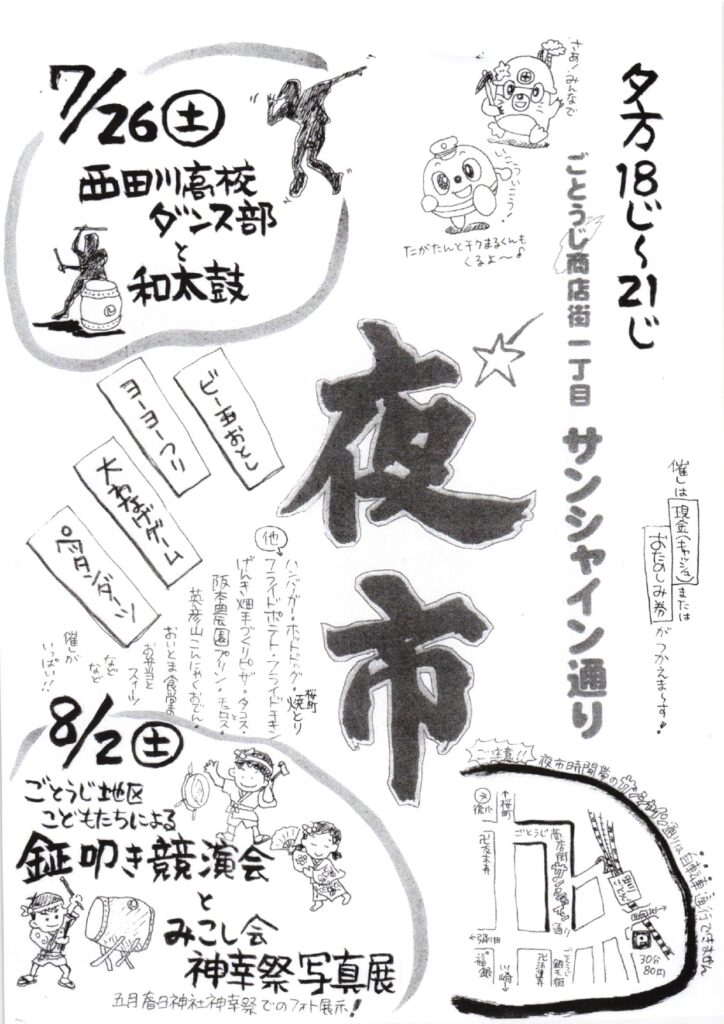 7/26(土)
西田川高校
ダンス部
と
和太鼓
さあ!みんなで
いこういこう!
たがたんとチクまるくんも
くるよ〜♪
夕方18じ〜21じ
ごとうじ商店街 一丁目 サンシャイン通り
夜市
催しは現金(キャッシュ)または
おたのしみ券がつかえま〜す!
ビー玉おとし
ヨーヨーつり
大わなげゲーム
ペタンダーツ
他
ハンバーガー・ホットドッグ・桜町焼とり
フライドポテト・フライドチキン
げんき畑手づくりピザ・タコス・
阪本農園プリン・チュロス・
英彦山こんにゃくおでんと
おいとま食堂の
お弁当と
スイーツ
などなど
催しが
いっぱい!!
8/2(土)
ごとうじ地区
こどもたちによる
鉦叩き競演会
と
みこし会
神幸祭写真展
五月春日神社神幸祭でのフォト展示!
ご注意!!
夜市時間帯のサンシャイン通りは自転車通行できません
後小
桜町
ごとうじ商店街
サンシャイン通り
福銀
川崎
30分
80円